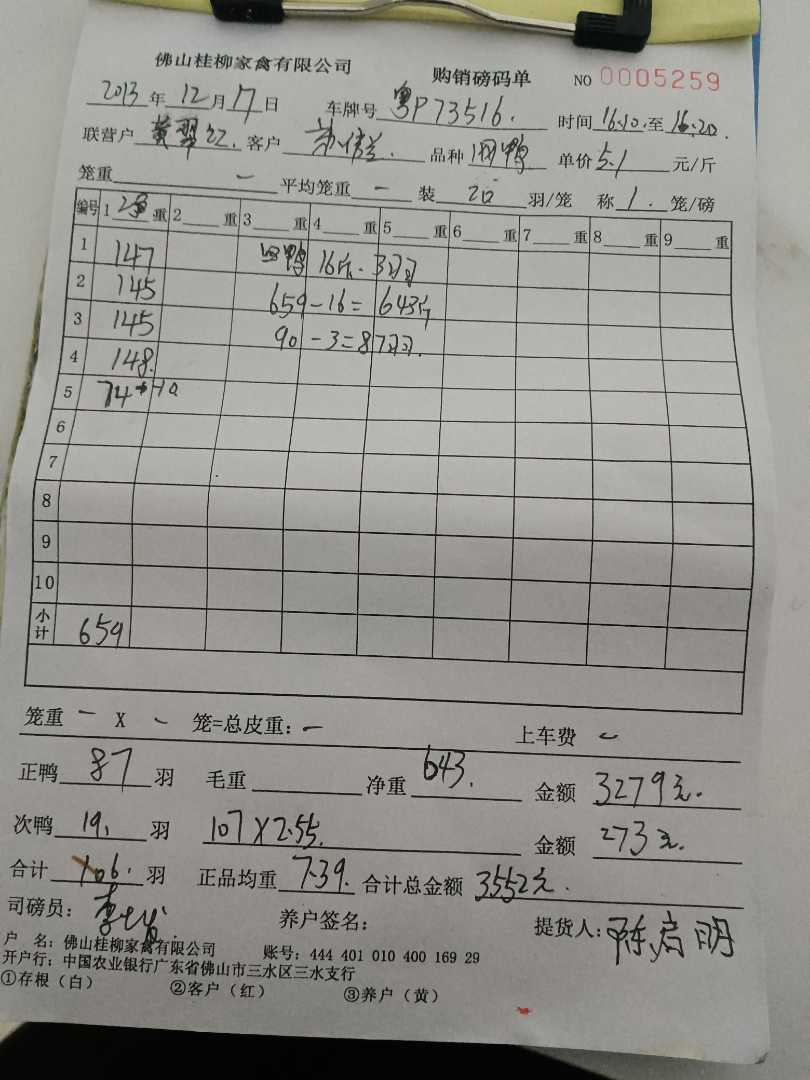 佛山桂柳家禽有限公司 购销磅码单 NO 0005259
2013年12月17日 车牌号 粤P73516. 时间 16.10.至 16.20.
联营户 黄翠红. 客户 品种 四鸭 单价 5.1 元/斤
笼重 - 平均笼重 - 装 20 羽/笼 称 1. 笼/磅
编号 1 重 2 重 3 重 4 重 5 重 6 重 7 重 8 重 9 重
1 147 四鸭 16斤. 3羽
2 145 659-16=643斤
3 145 90-3=87羽.
4 148.
5 74 10
6
7
8
9
10
小计 659
笼重 - X - 笼=总皮重: - 上车费 -
正鸭 87 羽 毛重 净重 643. 金额 3279元.
次鸭 19. 羽 107X2.55. 金额 273元.
合计 106. 羽 正品均重 7.39. 合计总金额 3552元.
司磅员: 养户签名: 提货人: 陈启明
户 名: 佛山桂柳家禽有限公司 账号: 444 401 010 400 169 29
开户行: 中国农业银行广东省佛山市三水区三水支行
①存根(白) ②客户(红) ③养户(黄)